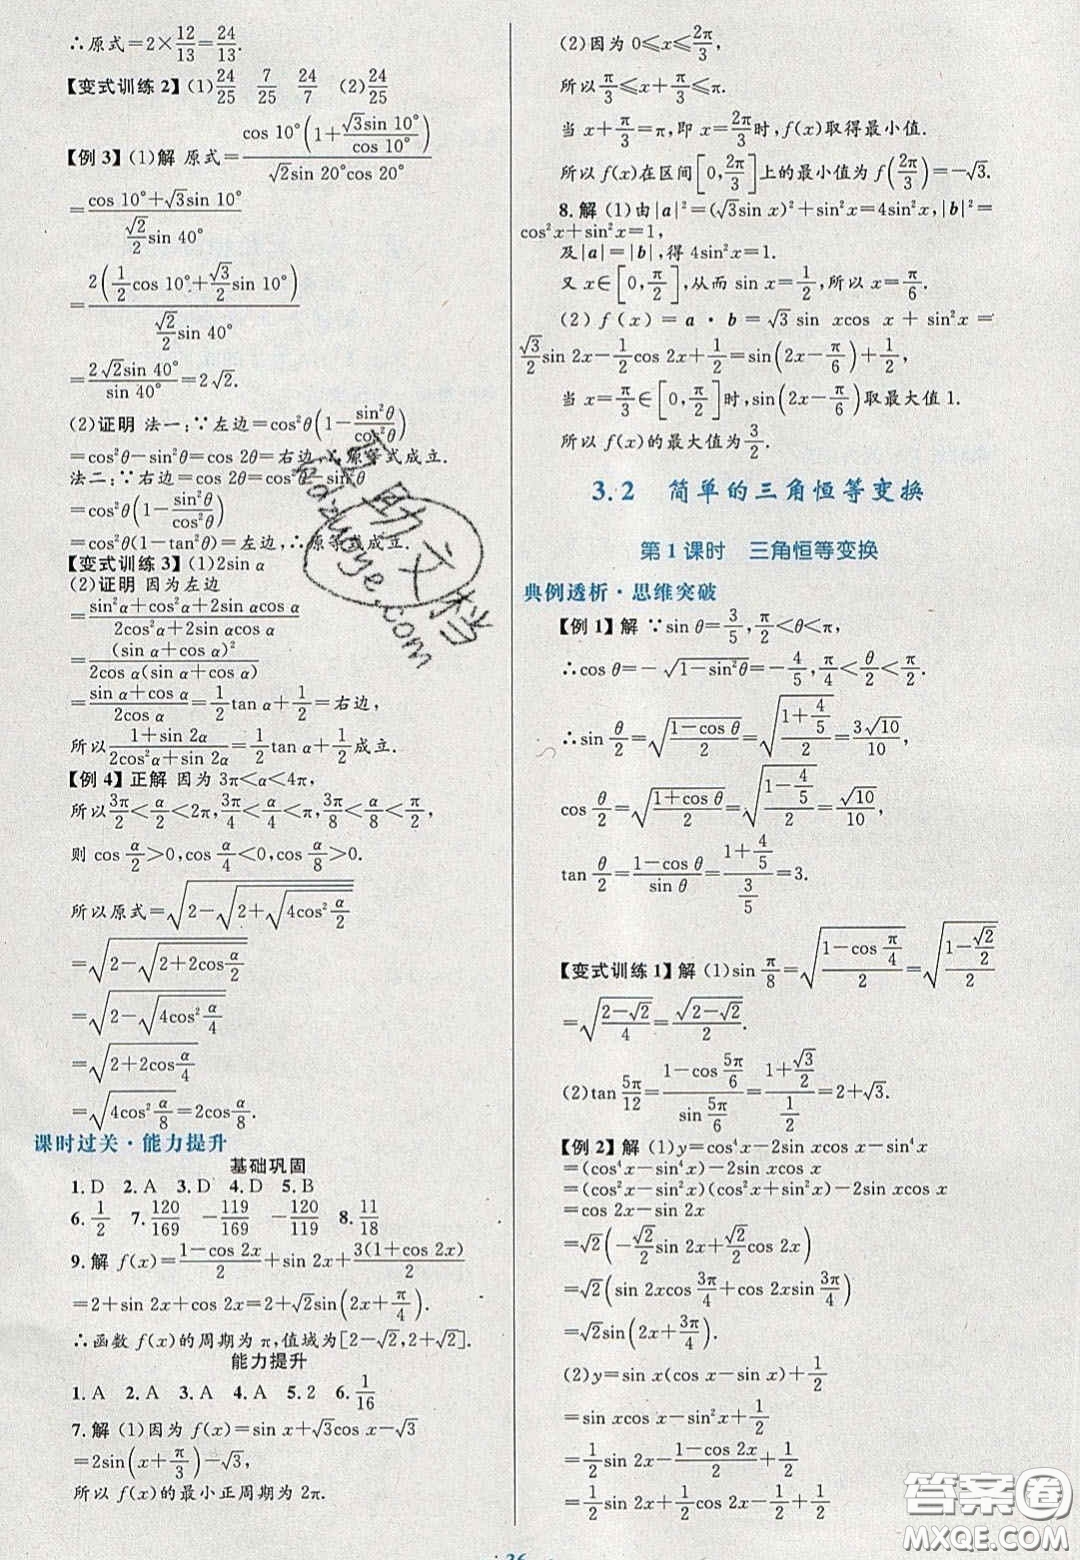 ∴原式=2×12/13=24/13.
【变式训练2】(1)24/25 7/25 24/7 (2)24/25
【例3】(1)解 原式=cos 10°(1+√3sin 10°/cos 10°)/(√2sin 20°cos 20°)
=(cos 10°+√3sin 10°)/(√2/2 sin 40°)
=2(1/2 cos 10°+√3/2 sin 10°)/(√2/2 sin 40°)
=2√2sin 40°/sin 40°=2√2.
(2)证明 法一:∵左边=cos²θ(1-sin²θ/cos²θ)
=cos²θ-sin²θ=cos 2θ=右边,∴原等式成立.
法二:∵右边=cos 2θ=cos²θ-sin²θ
=cos²θ(1-sin²θ/cos²θ)
=cos²θ(1-tan²θ)=左边,∴原等式成立.
【变式训练3】(1)2sin α
(2)证明 因为左边
=(sin²α+cos²α+2sin αcos α)/(2cos²α+2sin αcos α)
=(sin α+cos α)²/(2cos α(sin α+cos α))
=(sin α+cos α)/(2cos α)=1/2 tan α+1/2=右边,
所以(1+sin 2α)/(2cos²α+sin 2α)=1/2 tan α+1/2成立.
【例4】正解 因为 3π<α<4π,
所以3π/2<α/2<2π,3π/4<α/4<π,3π/8<α/8<π/2,
则 cos α/2>0,cos α/4<0,cos α/8>0.
所以原式=√(2-√(2+√(4cos² α/2)))
=√(2-√(2+2cos α/2))
=√(2-√(4cos² α/4))
=√(2+2cos α/4)
=√(4cos² α/8)=2cos α/8.
课时过关·能力提升
基础巩固
1.D 2.A 3.D 4.D 5.B
6.1/2 7.120/169 -119/169 -120/119 8.11/18
9.解 f(x)=(1-cos 2x)/2+sin 2x+3(1+cos 2x)/2
=2+sin 2x+cos 2x=2+√2sin(2x+π/4).
∴函数 f(x)的周期为 π,值域为[2-√2,2+√2].
能力提升
1.A 2.A 3.A 4.A 5.2 6.1/16
7.解 (1)因为 f(x)=sin x+√3cos x-√3
=2sin(x+π/3)-√3,
所以 f(x)的最小正周期为 2π.
(2)因为 0≤x≤2π/3,
所以π/3≤x+π/3≤π.
当 x+π/3=π,即 x=2π/3时,f(x)取得最小值.
所以 f(x)在区间[0,2π/3]上的最小值为 f(2π/3)=-√3.
8.解 (1)由|a|²=(√3sin x)²+sin²x=4sin²x,|b|²=
cos²x+sin²x=1,
及|a|=|b|,得 4sin²x=1.
又 x∈[0,π/2],从而 sin x=1/2,所以 x=π/6.
(2) f(x)=a·b=√3 sin xcos x+sin²x=
√3/2 sin 2x-1/2 cos 2x+1/2=sin(2x-π/6)+1/2,
当 x=π/3∈[0,π/2]时,sin(2x-π/6)取最大值 1.
所以 f(x)的最大值为3/2.
3.2 简单的三角恒等变换
第1课时 三角恒等变换
典例透析·思维突破
【例1】解 ∵sin θ=3/5,π/2<θ<π,
∴cos θ=-√(1-sin²θ)=-4/5,π/4<θ/2<π/2.
∴sin θ/2=√((1-cos θ)/2)=√((1+4/5)/2)=3√10/10,
cos θ/2=√((1+cos θ)/2)=√((1-4/5)/2)=√10/10,
tan θ/2=(1-cos θ)/sin θ=(1+4/5)/(3/5)=3.
【变式训练1】解 (1)sin π/8=√((1-cos π/4)/2)=√((1-√2/2)/2)
=√((2-√2)/4)=√(2-√2)/2.
(2)tan 5π/12=(1-cos 5π/6)/sin 5π/6=(1+√3/2)/(1/2)=2+√3.
【例2】解 (1)y=cos⁴x-2sin xcos x-sin⁴x
=(cos⁴x-sin⁴x)-2sin xcos x
=(cos²x-sin²x)(cos²x+sin²x)-2sin xcos x
=cos 2x-sin 2x
=√2(-√2/2 sin 2x+√2/2 cos 2x)
=√2(sin 2xcos 3π/4+cos 2xsin 3π/4)
=√2sin(2x+3π/4).
(2)y=sin x(cos x-sin x)+1/2
=sin xcos x-sin²x+1/2
=1/2 sin 2x-(1-cos 2x)/2+1/2
=1/2 sin 2x+1/2 cos 2x
·26·
互助文档
hdzuoye.com
答案圈
MXQE.COM